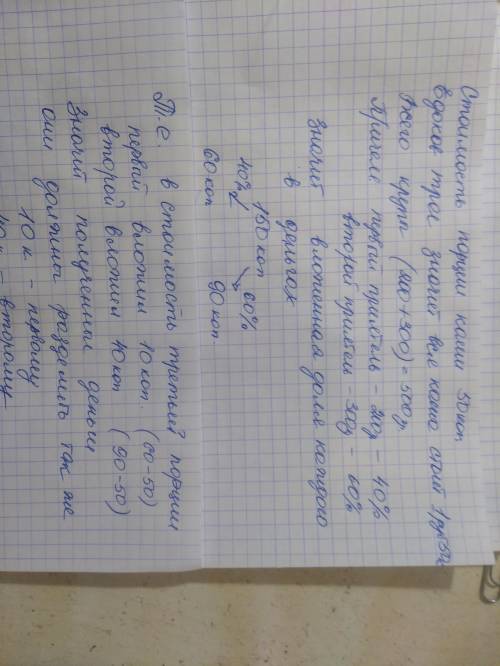 Стоимость порции каши 50 коп
Едоков трое значит вся каша стоит 1р50к
Всего крупа (200+300) = 500г.
Причем первый 200г – 40%
второй – 300г – 60%
Значит вложенная доля каждого
в
150 коп
40% 60%
60 коп 90 коп.
Т.е в стоимость третьей порции
первый вложил 10 коп. (60-50)
второй вложил 40 коп (90-50)
Значит полученные деньги
они должны разделить так же
10 к – первому
40 к – второму